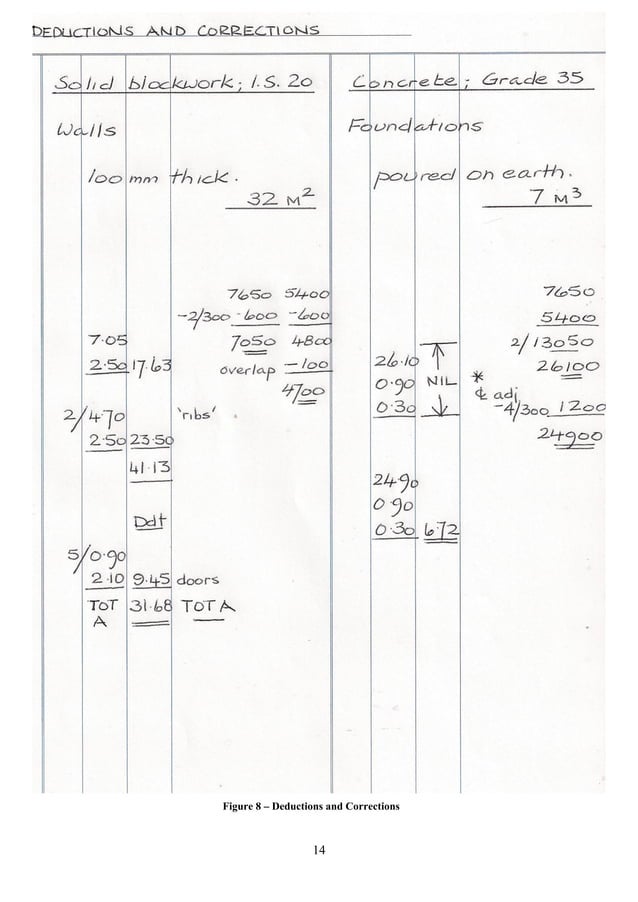 DEDUCTIONS AND CORRECTIONS
Solid blockwork; I.S. 20
Walls
100 mm thick.
32 M²
7650 5400
-2/300 -600 -600
7.05 7050 4800
2.50 17.63 overlap -100
4700
2/4.70 'ribs'
2.50 23.50
41.13
Ddt
5/0.90
2.10 9.45 doors
TOT 31.68 TOT A
A
Concrete; Grade 35
Foundations
poured on earth.
7 M³
7650
5400
2/13050
26.10 26100
0.90 NIL * ₵ adj
0.30 -4/300 1200
24900
24.90
0.90
0.30 6.72
Figure 8 – Deductions and Corrections
14